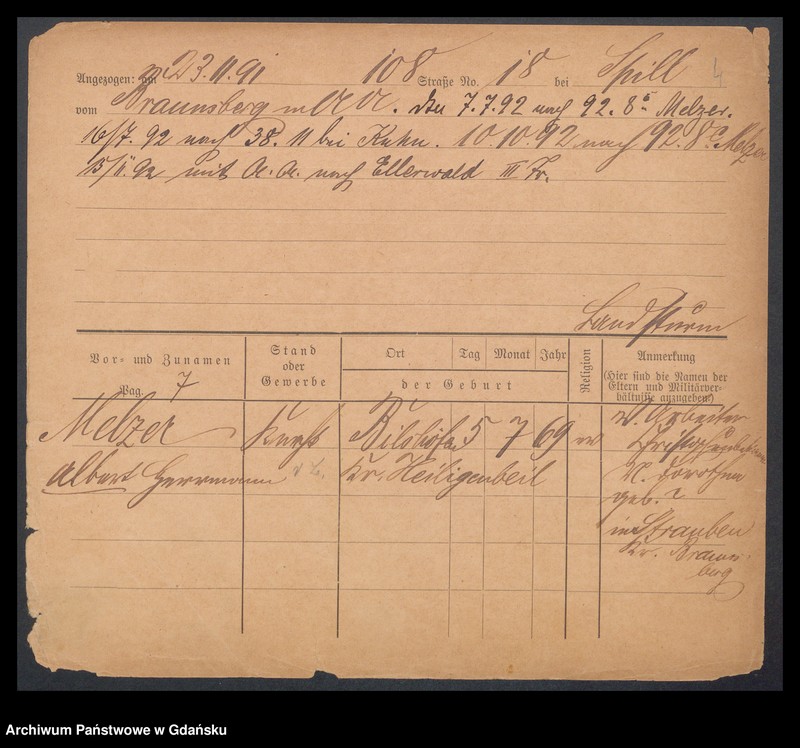 Angezogen: am 23.11.91 108 Straße No. 18 bei Spill 4
vom Braunsberg m A A. den 7.7.92 nach 92. 8c Melzer.
16/7. 92 nach 38. 11 bei Kuhn. 10.10.92 nach 92. 8c Melzer
15/11. 92 mit A. A. nach Ellerwald III Tr.
Landsturm
Vor- und Zunamen Stand oder Gewerbe Ort Tag Monat Jahr der Geburt Religion Anmerkung
(Hier sind die Namen der Eltern und Militärverhältnisse anzugeben.)
Pag. 7
Melzer Knecht 5 7 69 ev V. Arbeiter
Albert Herrmann Kr. Heiligenbeil M. Dorothea
geb. ?
in Strauben
Kr. Brauns-
berg
Archiwum Państwowe w Gdańsku